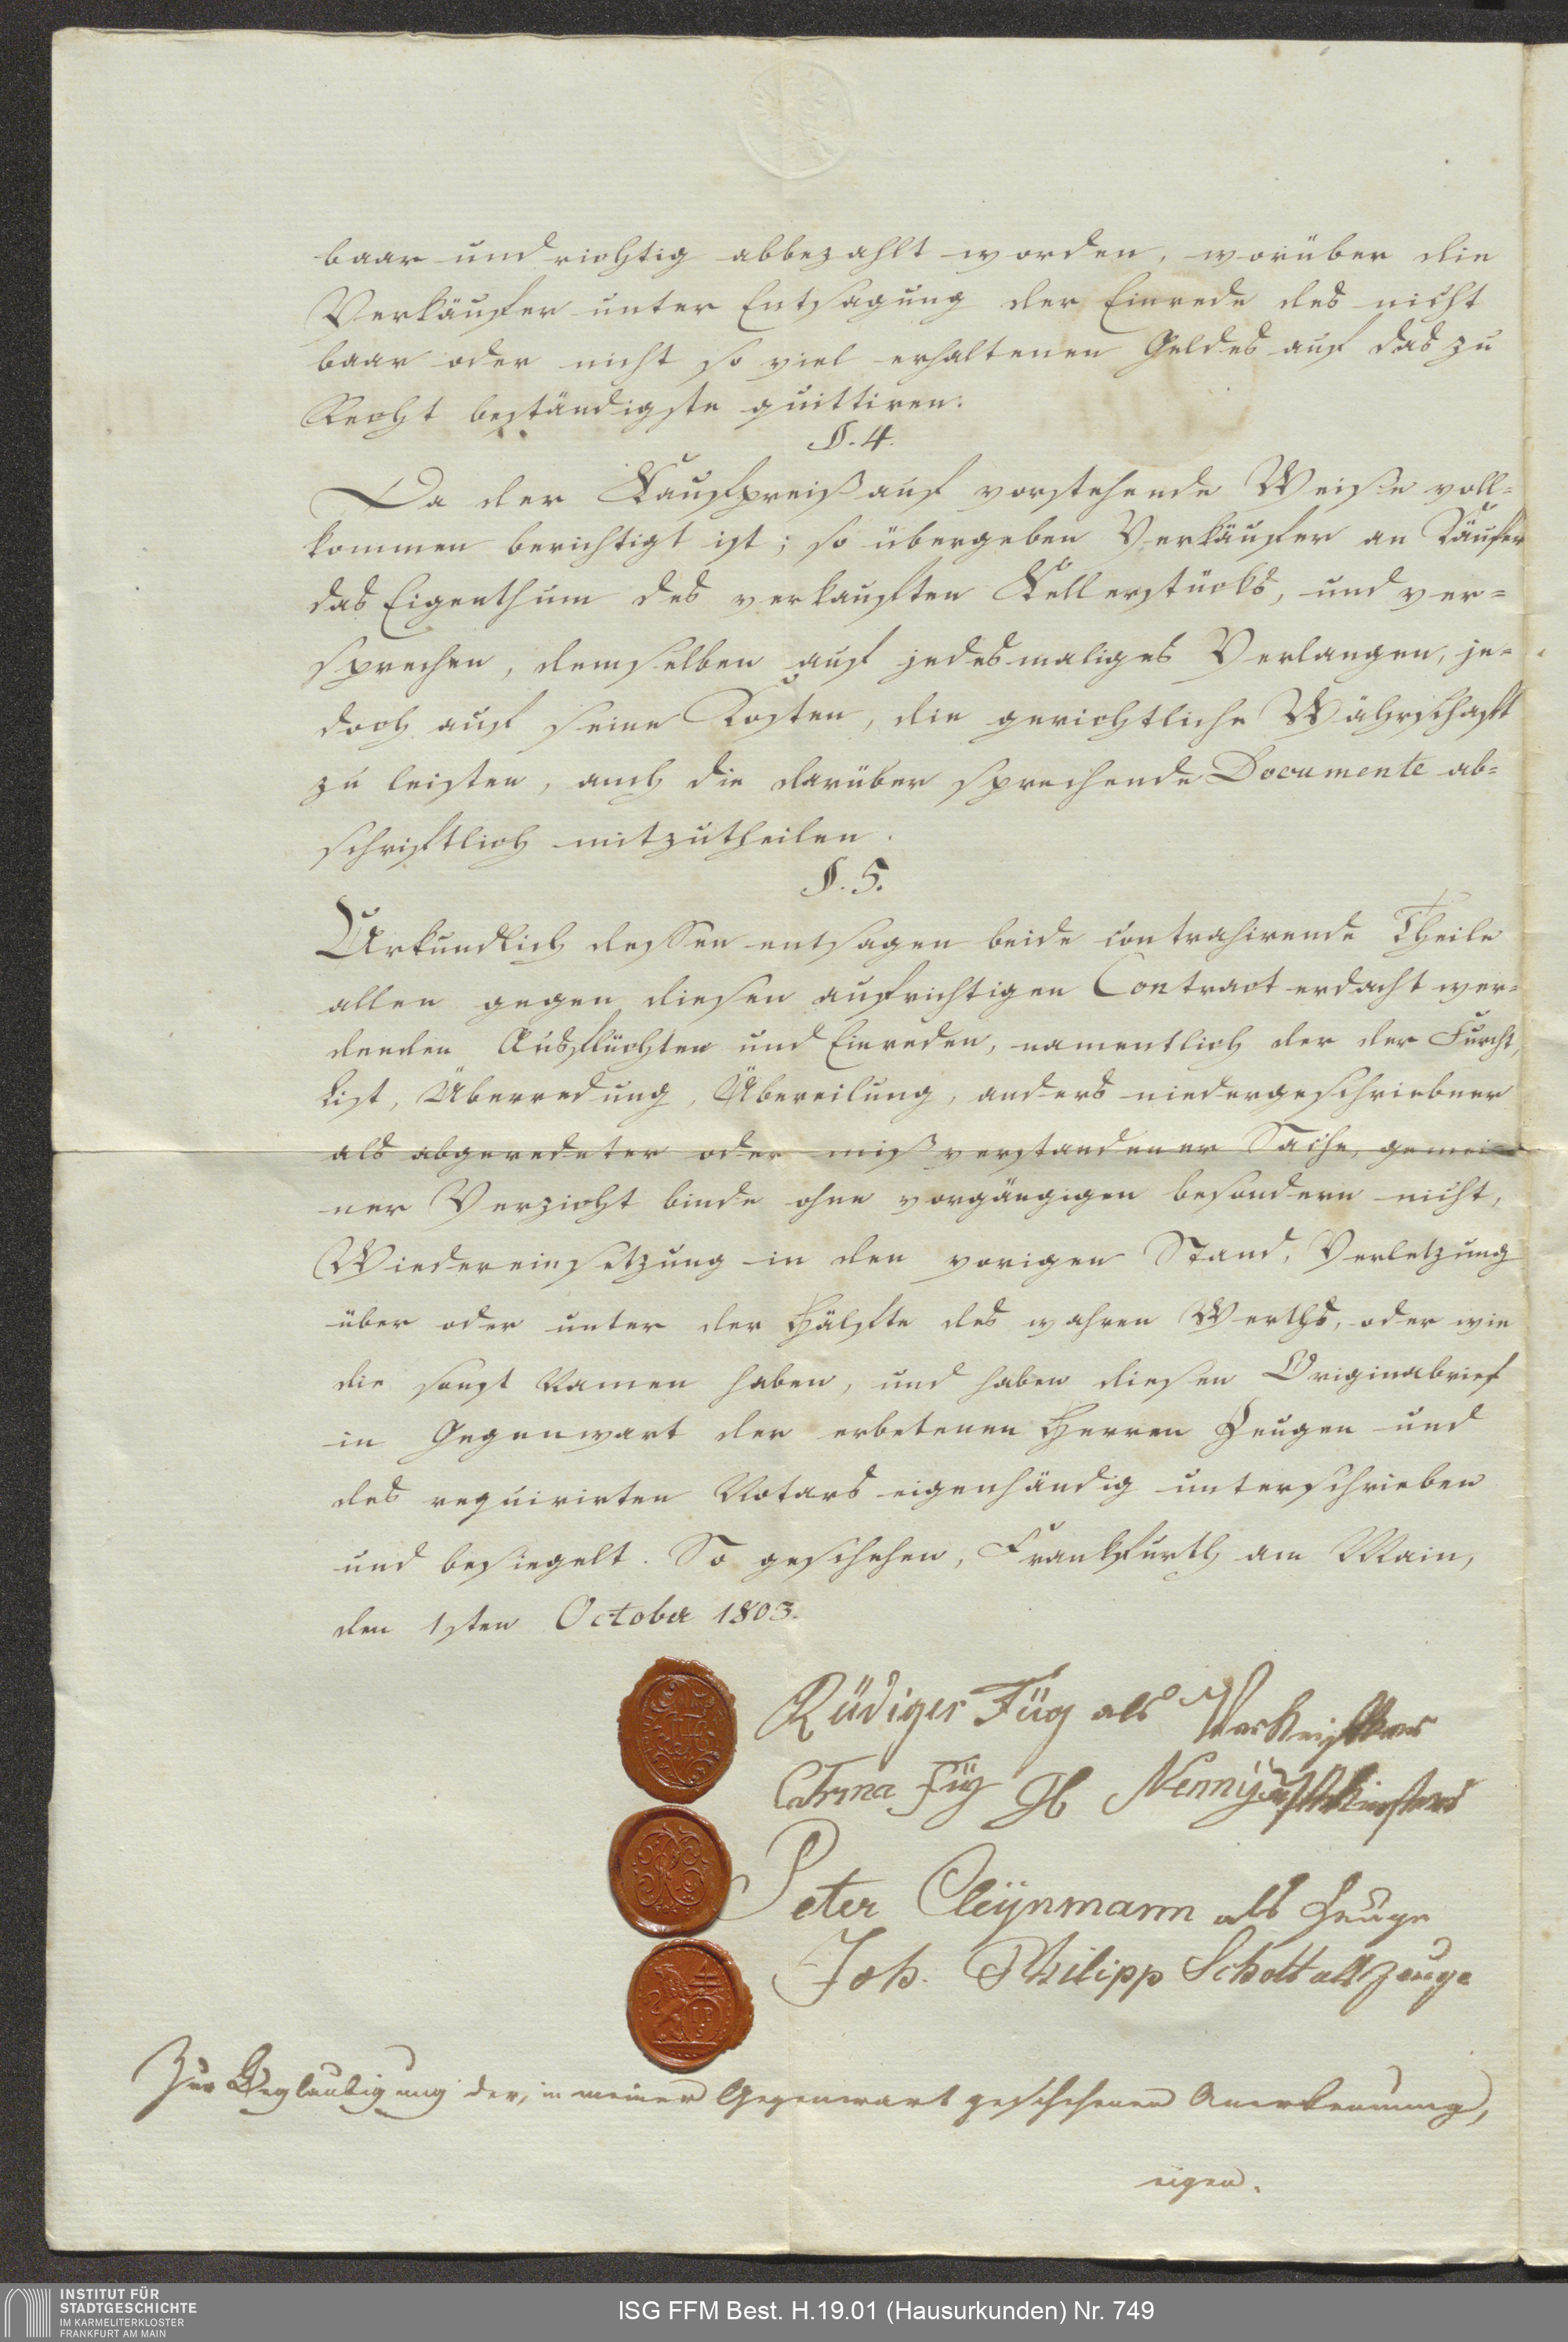 baar und richtig abbezahlt worden, worüber die
Verkäufer unter Entsagung der Einrede des nicht
baar oder nicht so viel erhaltenen Geldes auf das zu
Recht beständigste quittiren.
§. 4.
Da der Kaufpreiß auf vorstehende Weise voll-
kommen berichtigt ist; so übergeben Verkäufer an Käufer
das Eigenthum des verkauften Kellerstücks, und ver-
sprechen, demselben auf jedesmaliges Verlangen, je-
doch auf seine Kosten, die gerichtliche Währschaft
zu leisten, auch die darüber sprechende Documente ab-
schriftlich mitzutheilen.
§. 5.
Urkundlich dessen entsagen beide contrahirende Theile
allen gegen diesen aufrichtigen Contract erdacht wer-
denden Ausflüchten und Einreden, namentlich der der Furcht,
List, Überredung, Übereilung, anders niedergeschriebner
als abgeredeter oder mißverstandener Sache, gemei-
ner Verzicht binde ohne vorgängigen besondern nicht,
Wiedereinsetzung in den vorigen Stand, Verletzung
über oder unter der Hälfte des wahren Werths, oder wie
die sonst Namen haben, und haben diesen Originabrief
in Gegenwart der erbetenen Herren Zeugen und
des requirirten Notars eigenhändig unterschrieben
und besiegelt. So geschehen, Frankfurth am Main,
den 1sten October 1803.
Rüdiger Füg als
Catrina Füg
Peter Cleÿnmann als Zeuge
Joh. Philipp Schott als Zeuge
Zur Beglaubigung der, in meiner Gegenwart geschehenen Anerkennung,
eigen.
INSTITUT FÜR
STADTGESCHICHTE
IM KARMELITERKLOSTER
FRANKFURT AM MAIN
ISG FFM Best. H.19.01 (Hausurkunden) Nr. 749